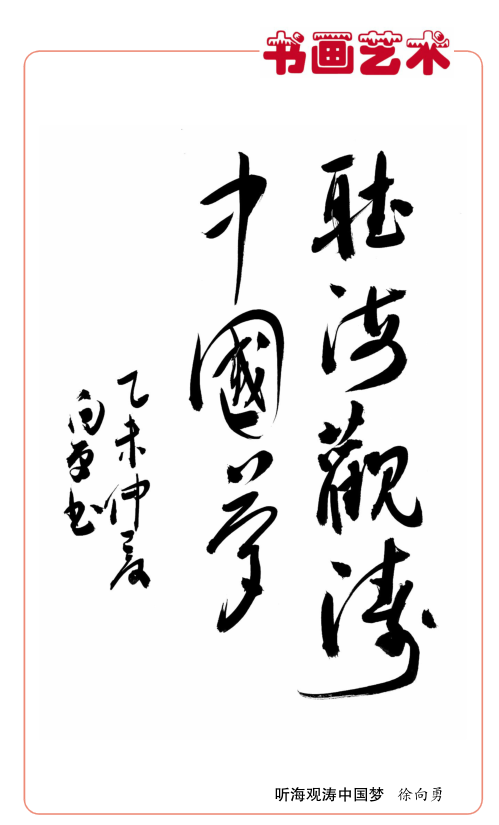 书画艺术
聽海觀濤
中國夢
乙未仲夏
向勇书
听海观涛中国梦 徐向勇